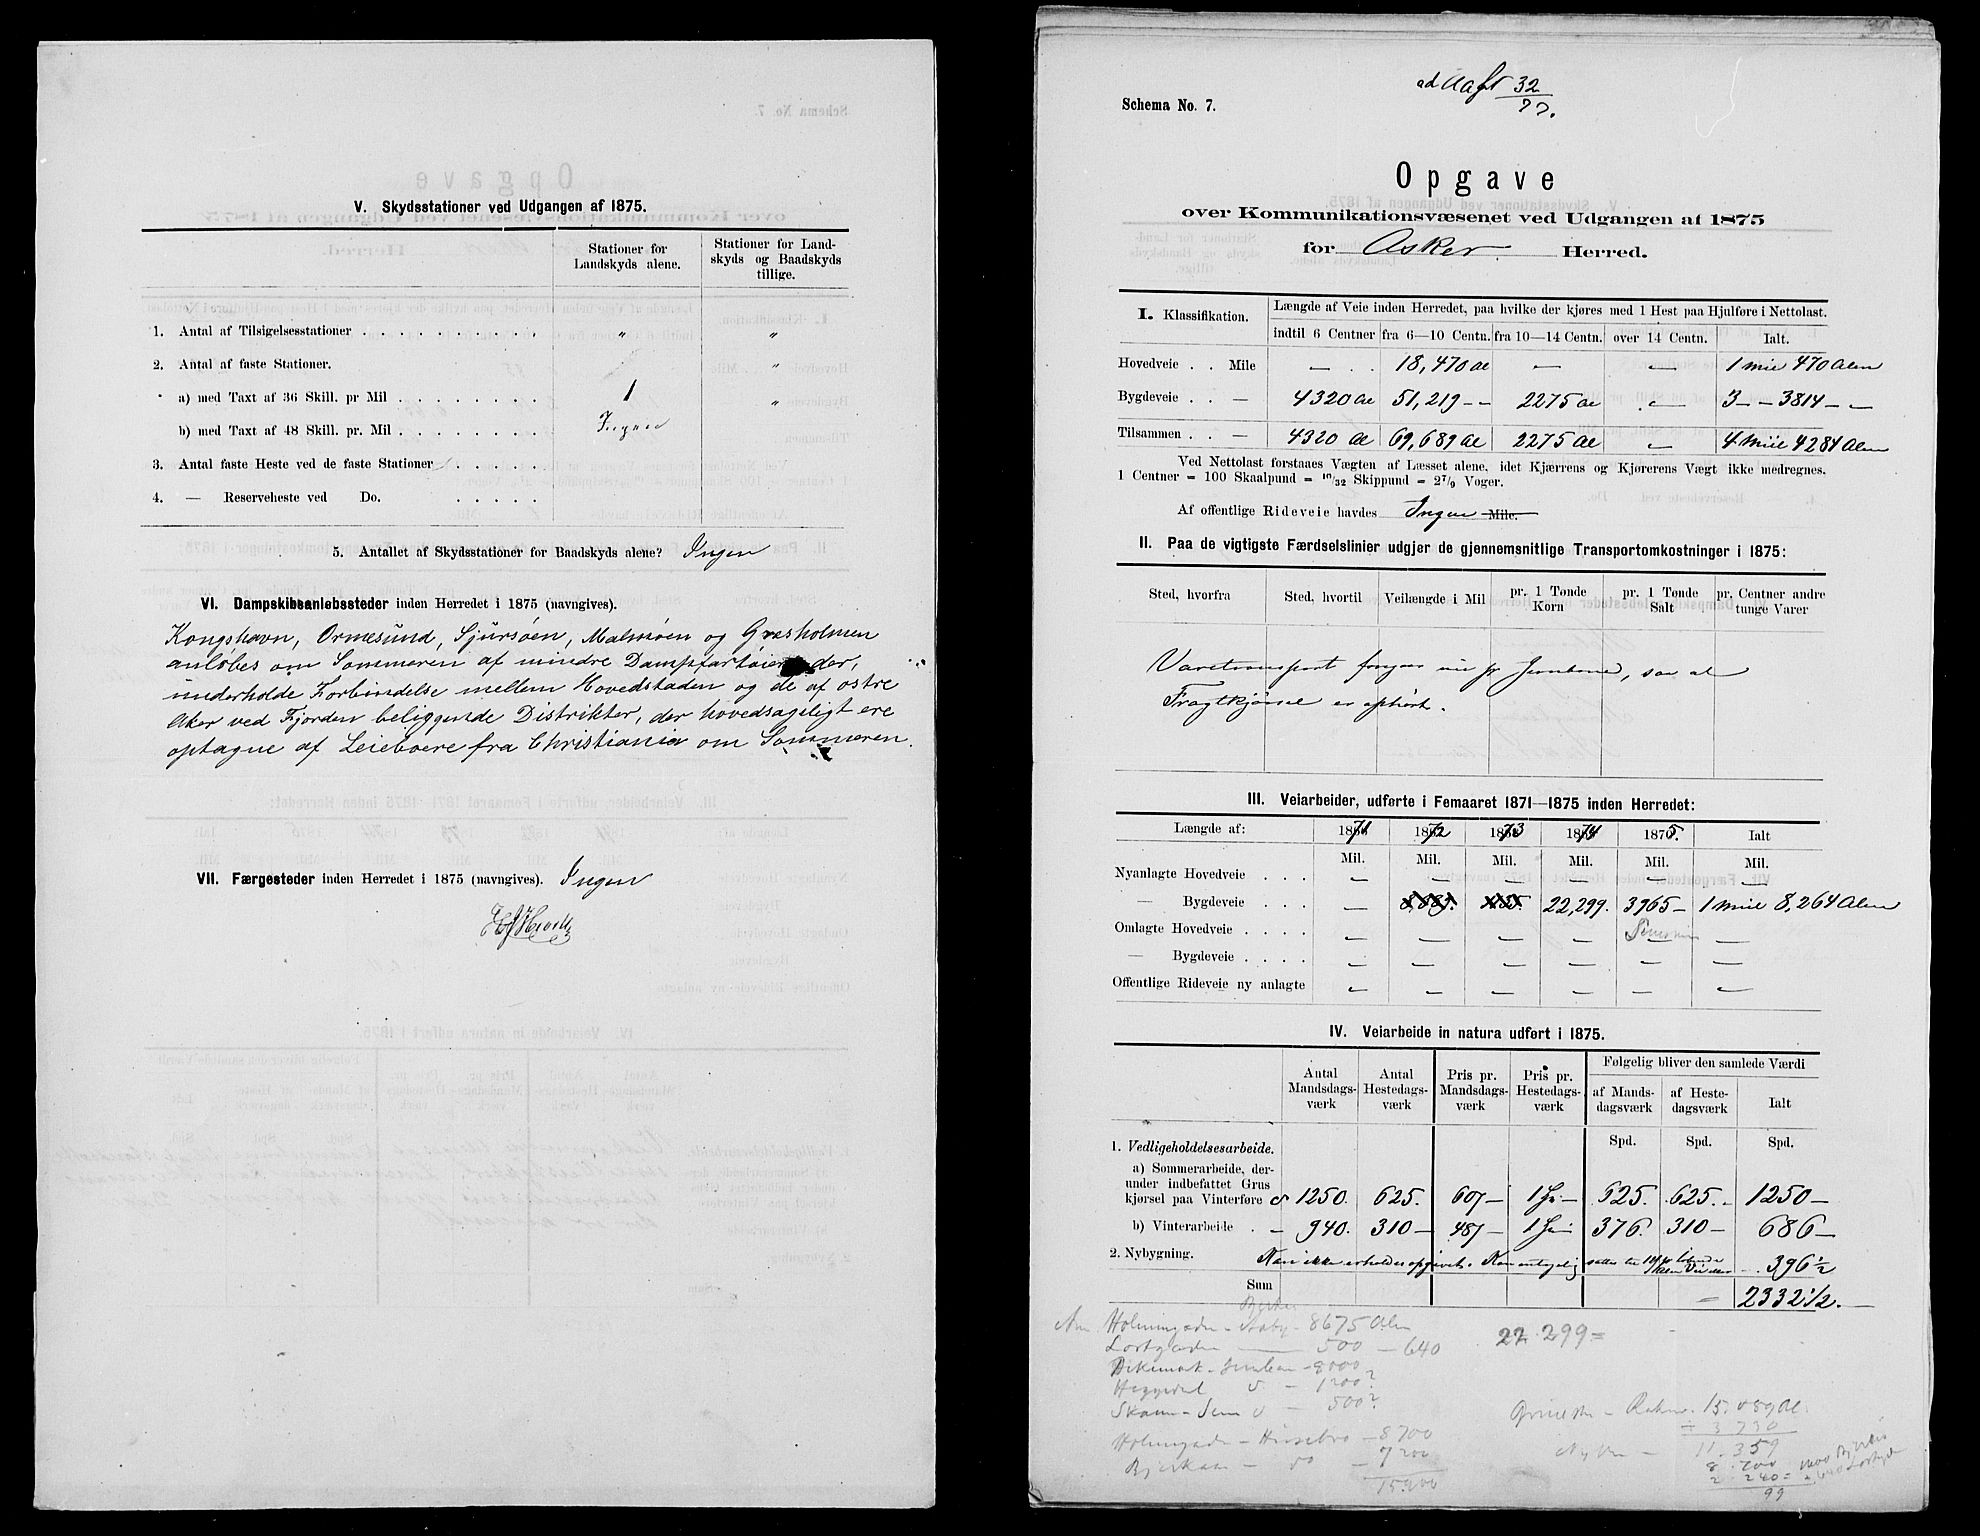 V. Skydsstationer ved Udgangen af 1875.
Stationer for Landskyds alene. Stationer for Land-skyds og Baadskyds tillige.
1. Antal af Tilsigelsesstationer . . . . . . . . . . . " "
2. Antal af faste Stationer. "
a) med Taxt af 36 Skill. pr Mil . . . . . . . . 1 "
b) med Taxt af 48 Skill. pr. Mil . . . . . . . Ingen
3. Antal faste Heste ved de faste Stationer . . . . .
4. — Reserveheste ved Do. . . . . .
5. Antallet af Skydsstationer for Baadskyds alene? Ingen
VI. Dampskibsanløbssteder inden Herredet i 1875 (navngives).
Kongshavn, Ormesund, Sjursøen, Malmøen og Græsholmen
anløbes om Sommeren af mindre Dampfartøier der,
underholde Forbindelse mellem Hovedstaden og de af østre
Aker ved Fjorden beliggende Distrikter, der hovedsageligt ere
optagne af Leieboere fra Christiania om Sommeren.
VII. Færgesteder inden Herredet i 1875 (navngives). Ingen
Schema No. 7.
32/77.
Opgave
over Kommunikationsvæsenet ved Udgangen af 1875
for Asker Herred.
I. Klassifikation. Længde af Veie inden Herredet, paa hvilke der kjøres med 1 Hest paa Hjulføre i Nettolast.
indtil 6 Centner fra 6—10 Centn. fra 10—14 Centn. over 14 Centn. Ialt.
Hovedveie . . Mile — 18,470 al — — 1 Miil 470 Alen
Bygdeveie . . — 4320 al 51,219 - - 2275 al - 3 - - 3814 - -
Tilsammen . . — 4320 al 69,689 al 2275 al - 4 Miil 4284 Alen
Ved Nettolast forstaaes Vægten af Læsset alene, idet Kjærrens og Kjørerens Vægt ikke medregnes.
1 Centner = 100 Skaalpund = 10/32 Skippund = 2 7/9 Voger.
Af offentlige Rideveie havdes Ingen Mile.
II. Paa de vigtigste Færdselslinier udgjør de gjennemsnitlige Transportomkostninger i 1875:
Sted, hvorfra Sted, hvortil Veilængde i Mil pr. 1 Tønde Korn pr. 1 Tønde Salt pr. Centner andre tunge Varer
Varetransport foregaar nu pr Jernbane, saa at
Fragtkjørsel er ophørt.
III. Veiarbeider, udførte i Femaaret 1871—1875 inden Herredet:
Længde af: 1871 1872 1873 1874 1875. Ialt
Mil. Mil. Mil. Mil. Mil. Mil.
Nyanlagte Hovedveie . . . — — — — — —
— Bygdeveie . . . — 22,299. 3965 - 1 Miil 8,264 Alen
Omlagte Hovedveie . . . . — — — — — —
— Bygdeveie . . . . — — — — — —
Offentlige Rideveie ny anlagte — — — — — —
IV. Veiarbeide in natura udført i 1875.
Antal Mandsdags-værk Antal Hestedags-værk Pris pr. Mandsdags-værk Pris pr. Hestedags-værk Følgelig bliver den samlede Værdi
af Mands-dagsværk af Heste-dagsværk Ialt
Spd. Spd. Spd.
1. Vedligeholdelsesarbeide.
a) Sommerarbeide, der-
under indbefattet Grus
kjørsel paa Vinterføre 1250. 625. 60 1 625. 625. - 1250 -
b) Vinterarbeide . . 940. 310 - 48 1 376. 310 - 686 -
2. Nybygning. Kan ikke erholdes opgivet. 396 1/2
Sum 2332 1/2.
8675 Alen
500 - 640 22.299 =
8000
1200?
500?
15.089 Al.
8700 3730
7200 11.359
15.900 8.700
2.240 =
99